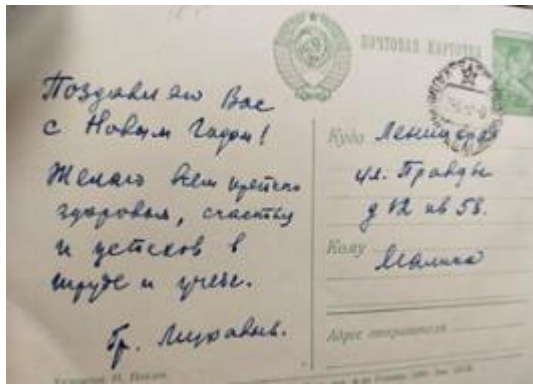 ПОЧТОВАЯ КАРТОЧКА
Поздравляю Вас
с Новым Годом!
Желаю Вам крепкого
здоровья, счастья
и успехов в
труде и учебе.
Куда Ленинград
ул. Правды
д 12 кв 58.
Кому
Адрес отправителя